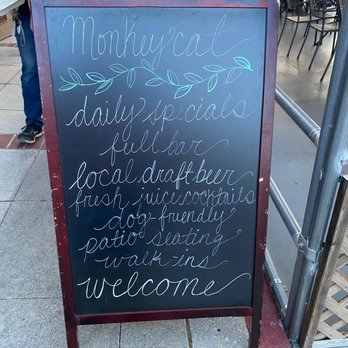 Monkeycat
daily specials
full bar
local draft beer
fresh juice cocktails
dog-friendly
patio seating
walk-ins
welcome